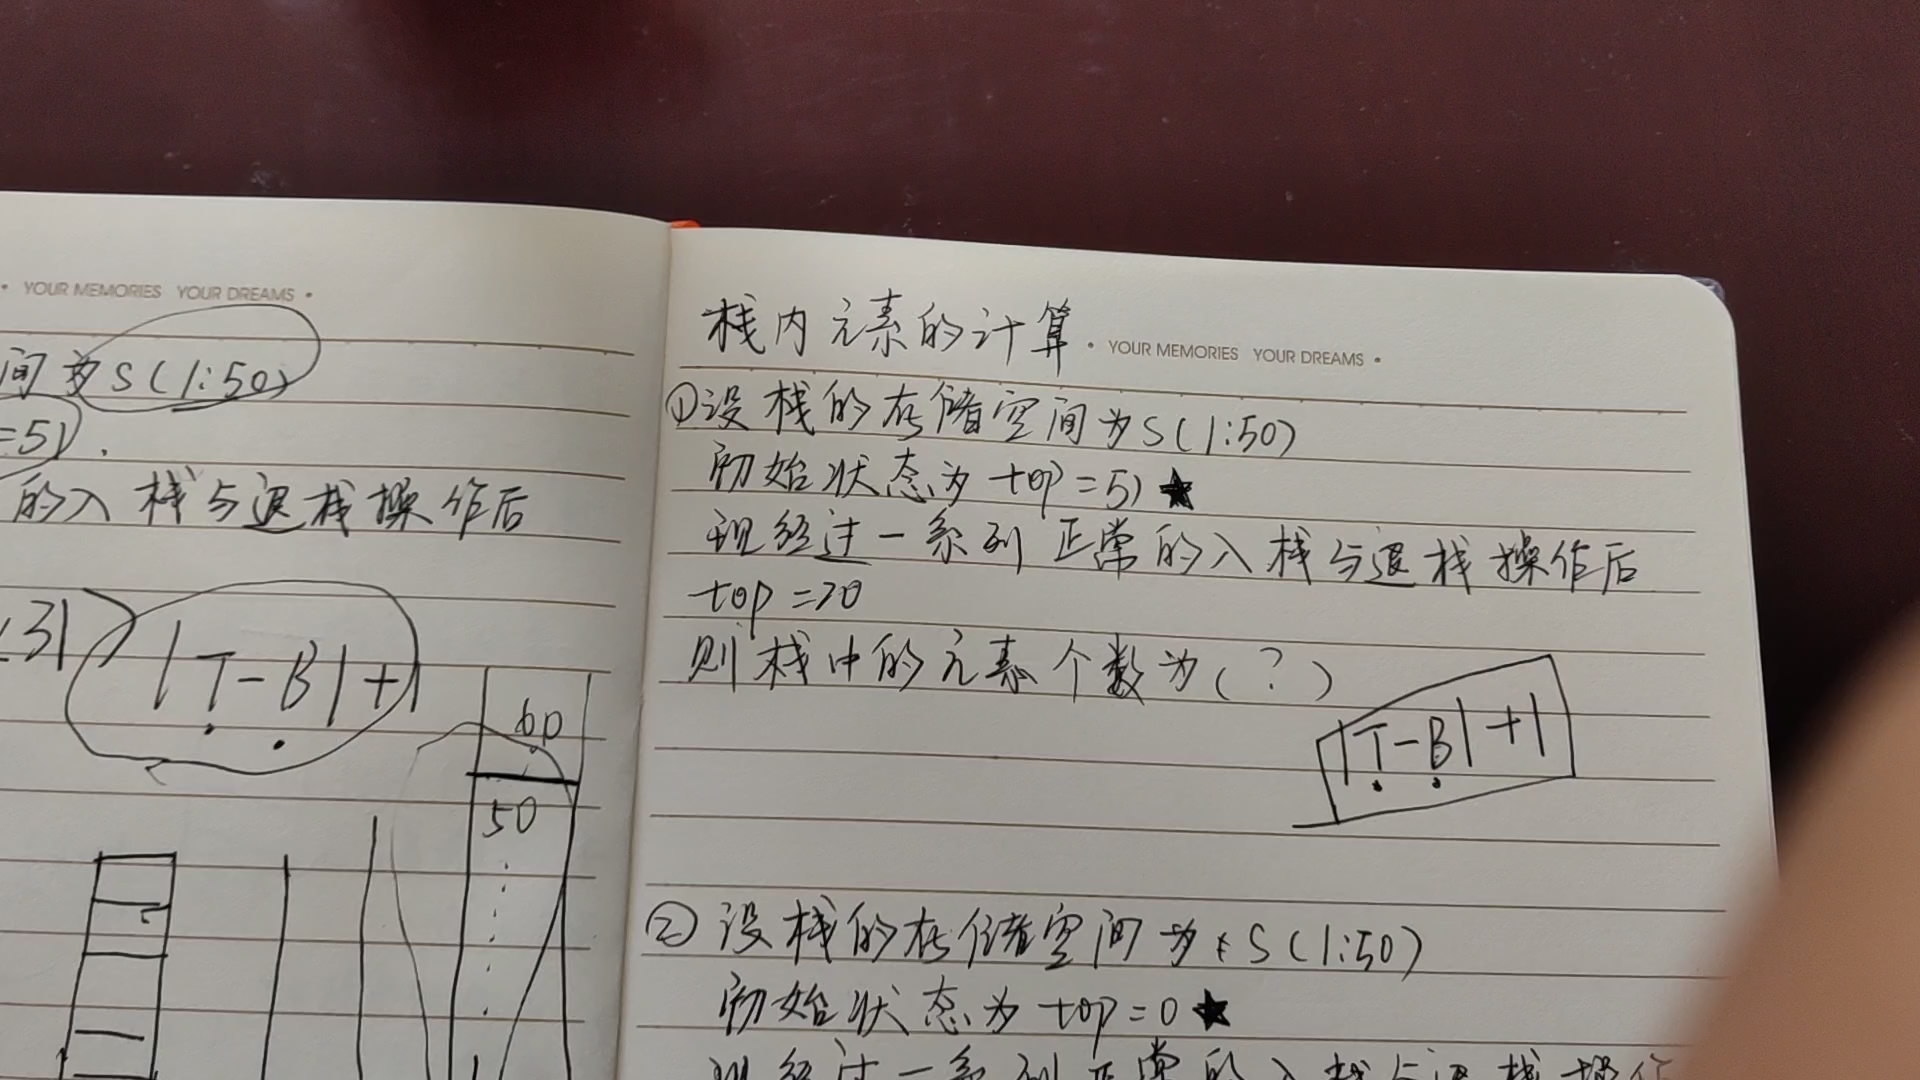 YOUR MEMORIES YOUR DREAMS
间为S(1:50)
=51).
的入栈与退栈操作后
31
|T-B|+1
60
50
栈内元素的计算
YOUR MEMORIES YOUR DREAMS
①设栈的存储空间为S(1:50)
初始状态为 top=51 ★
现经过一系列正常的入栈与退栈操作后
top=20
则栈中的元素个数为(?)
|T-B|+1
② 设栈的存储空间为 S(1:50)
初始状态为 top=0 ★
现经过一系列正常的入栈与退栈操作